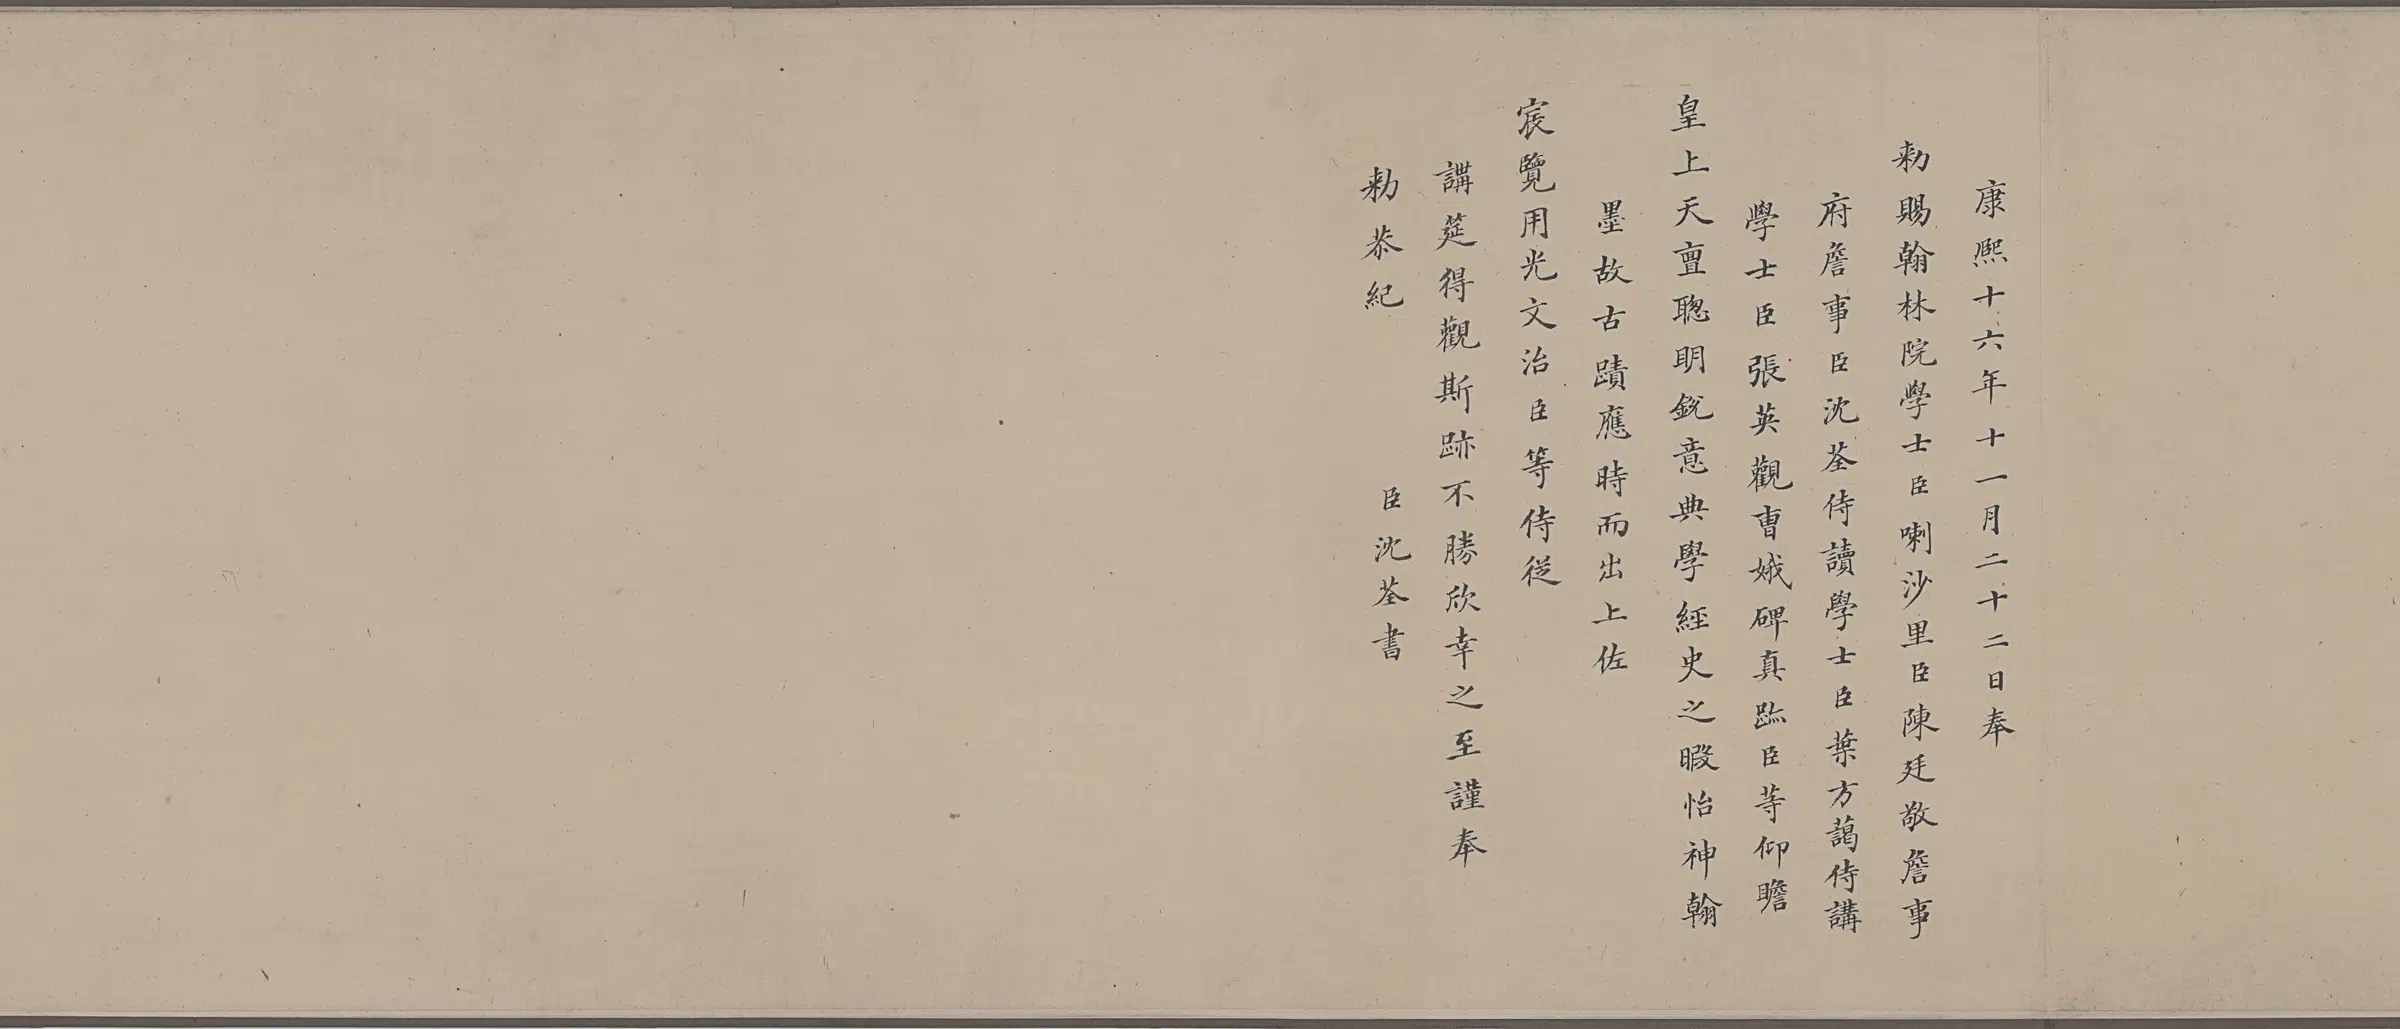 康熙十六年十一月二十二日奉
勅賜翰林院學士臣喇沙里臣陳廷敬詹事
府詹事臣沈荃侍讀學士臣葉方藹侍講
學士臣張英觀曹娥碑真跡臣等仰瞻
皇上天亶聰明銳意典學經史之暇怡神翰
墨故古蹟應時而出上佐
宸覽用光文治臣等侍從
講筵得觀斯跡不勝欣幸之至謹奉
勅恭紀 臣沈荃書